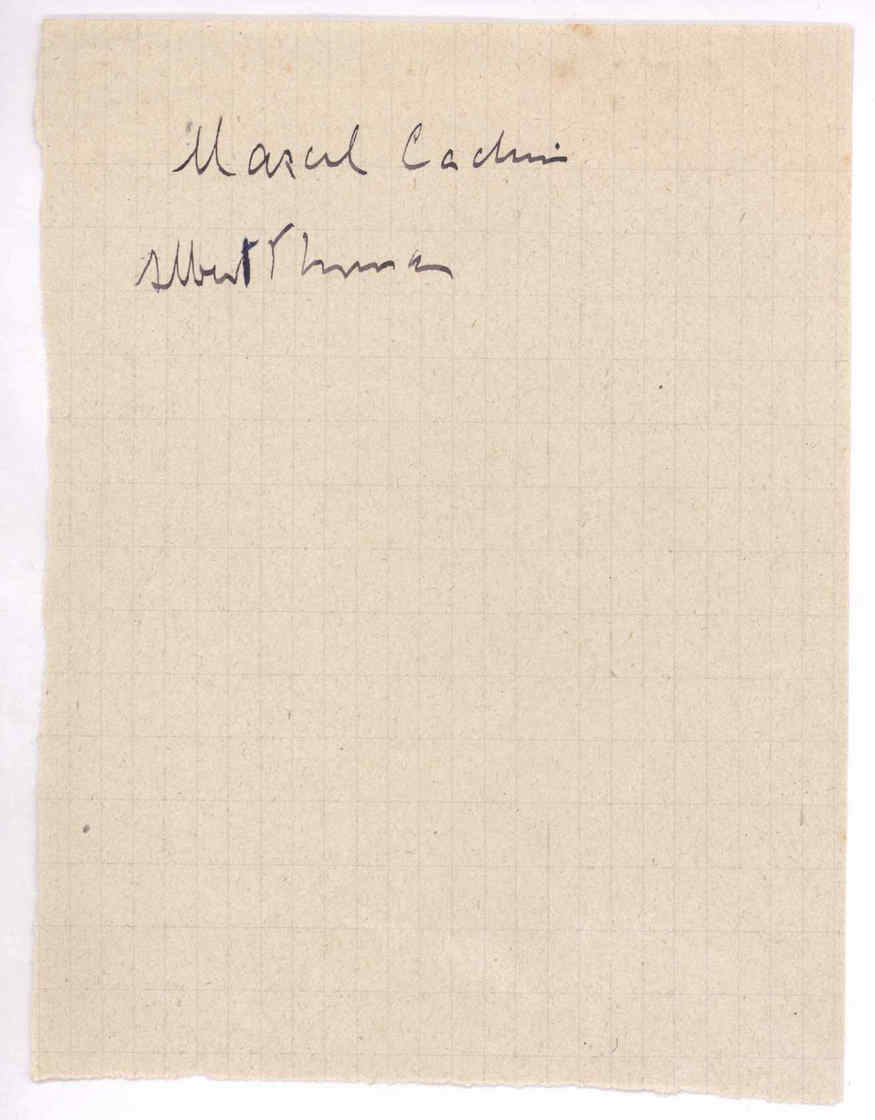 Marcel Cachin
Albert Thomas